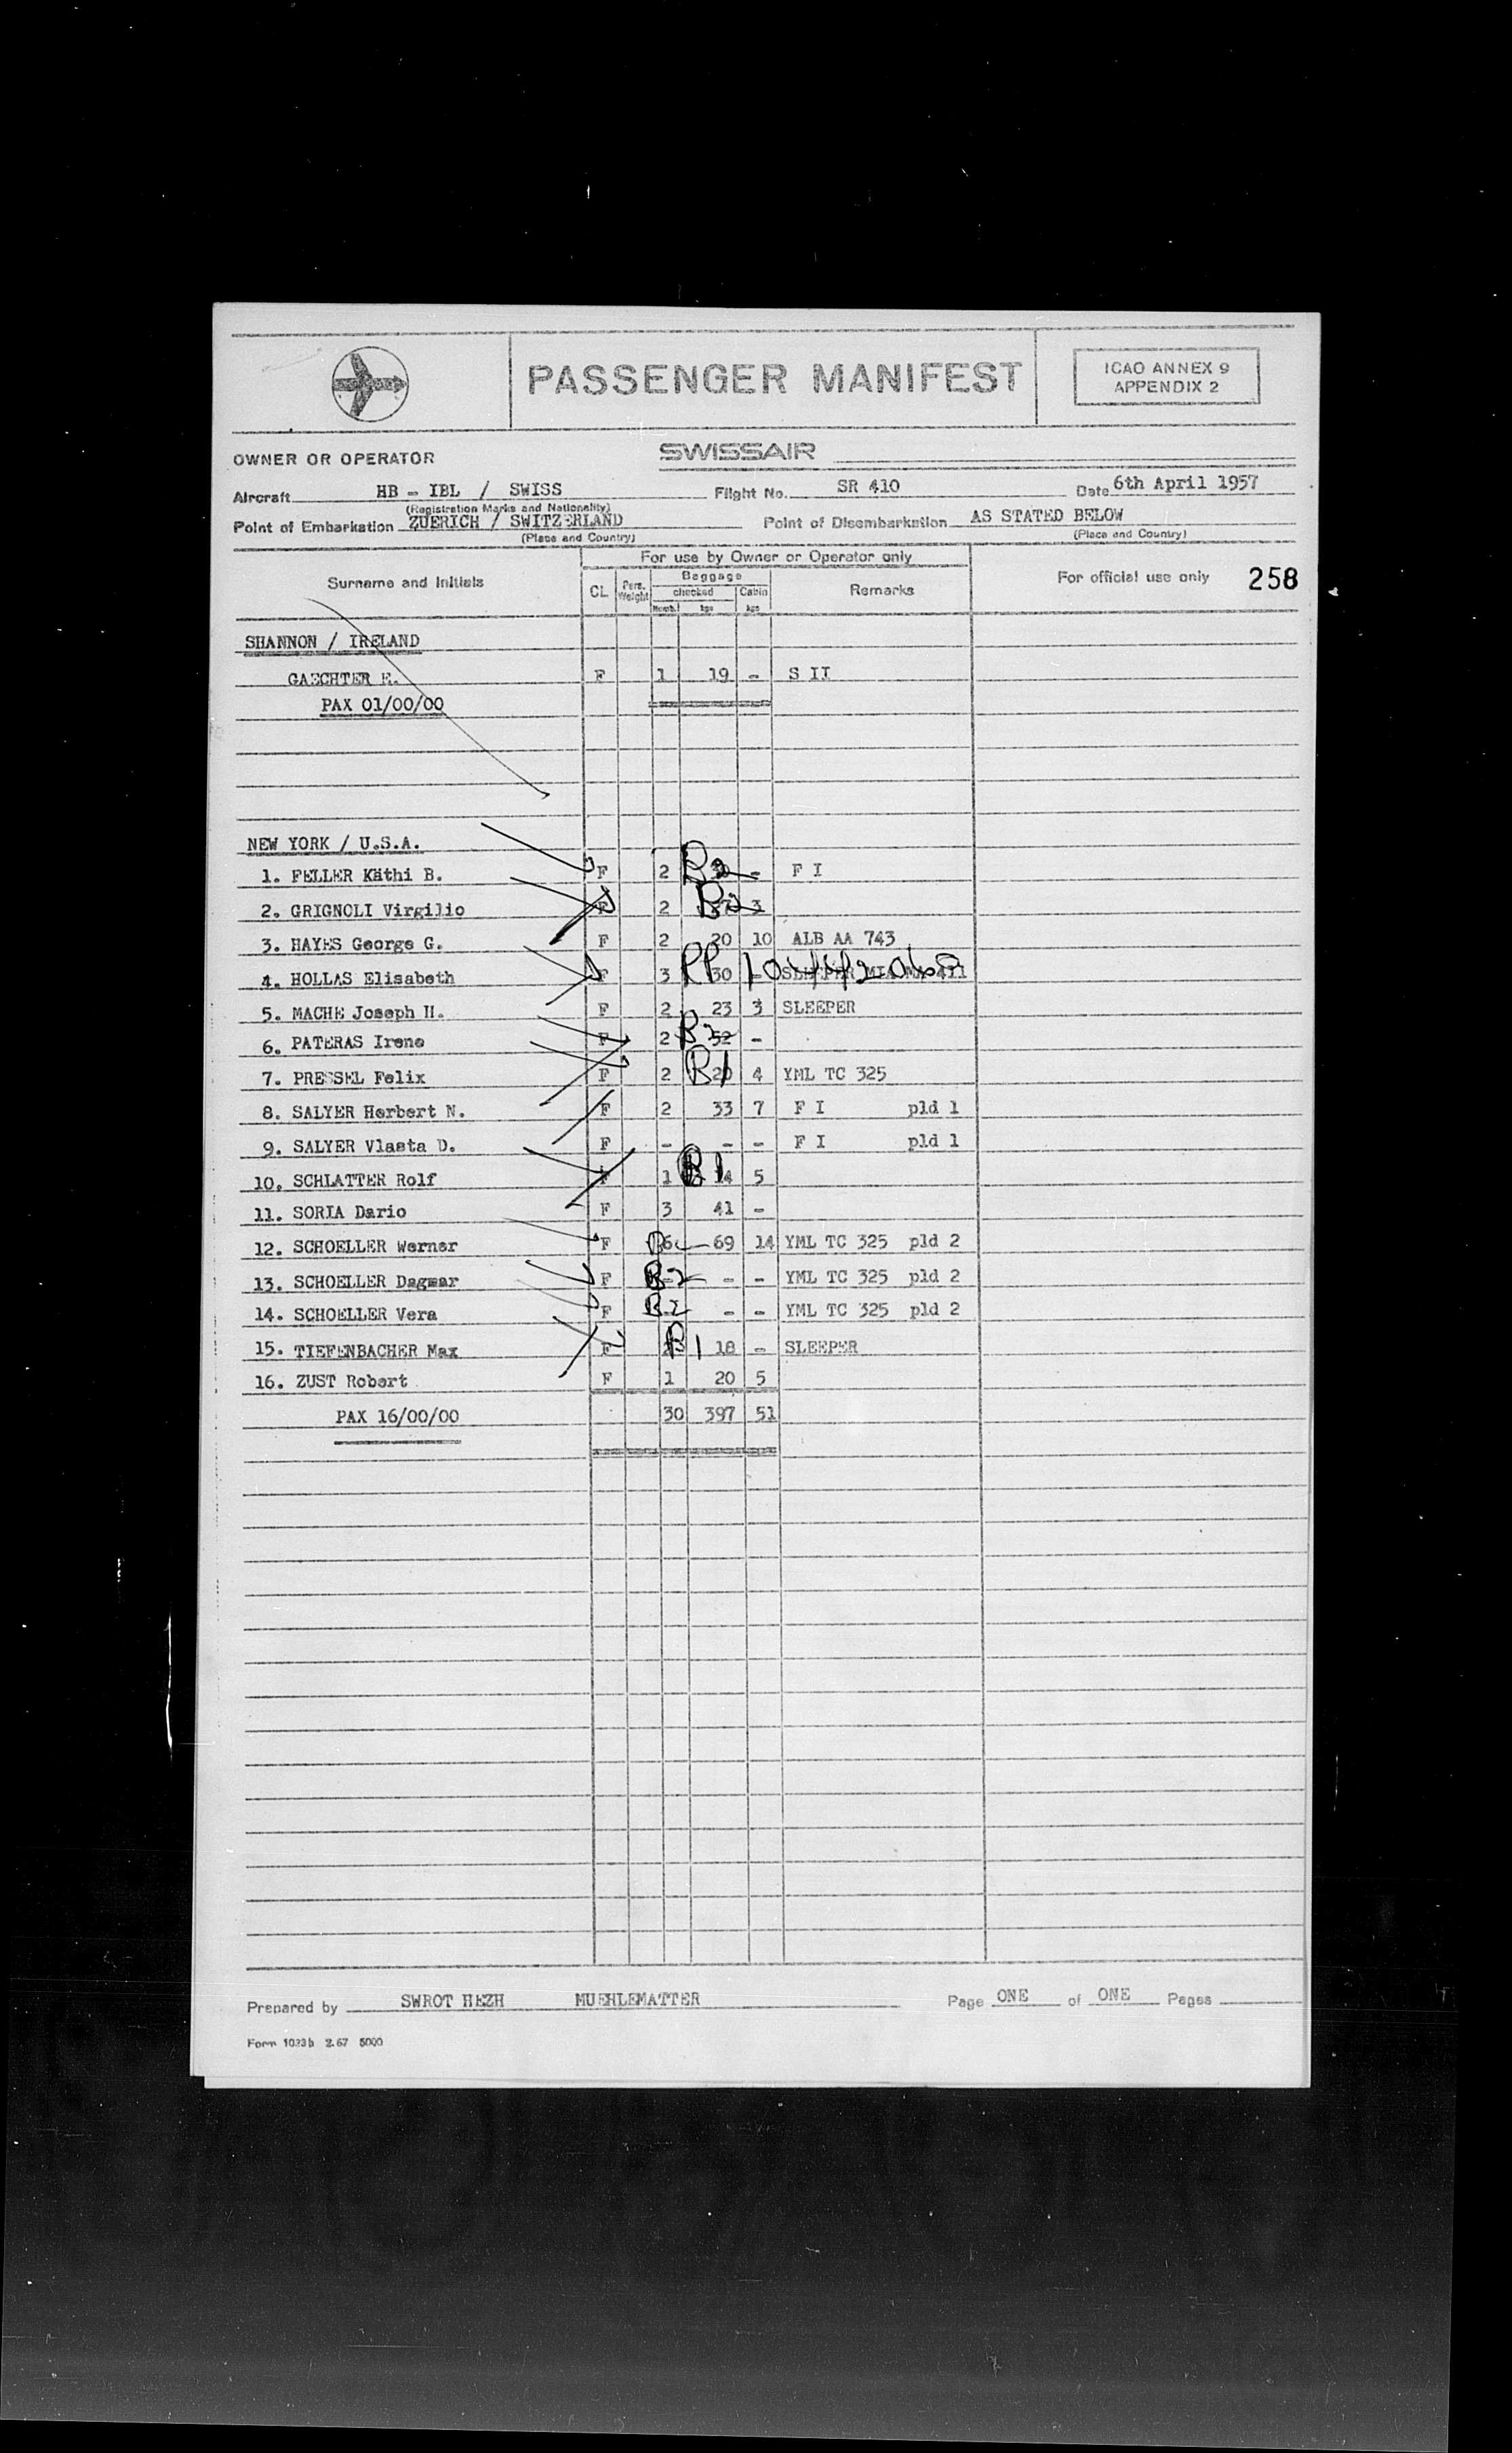 PASSENGER MANIFEST
ICAO ANNEX 9
APPENDIX 2
OWNER OR OPERATOR SWISSAIR
Aircraft HB - IBL / SWISS Flight No. SR 410 Date 6th April 1957
(Registration Marks and Nationality)
Point of Embarkation ZUERICH / SWITZERLAND Point of Disembarkation AS STATED BELOW
(Place and Country) (Place and Country)
For use by Owner or Operator only
Surname and Initials CL Pers. Weight Baggage checked Numb. kgs Cabin kgs Remarks For official use only 258
SHANNON / IRELAND
GAECHTER E. F 1 19 - S II
PAX 01/00/00
NEW YORK / U.S.A.
1. FELLER Käthi B. F 2 B2 - F I
2. GRIGNOLI Virgilio F 2 B2 3
3. HAYES George G. F 2 20 10 ALB AA 743
4. HOLLAS Elisabeth F 3 PP 30 - SLEEPER
5. MACHE Joseph H. F 2 23 3 SLEEPER
6. PATERAS Irene F 2 B2 52 -
7. PRESSEL Felix F 2 B1 20 4 YML TC 325
8. SALYER Herbert N. F 2 33 7 F I pld 1
9. SALYER Vlasta D. F - - - F I pld 1
10. SCHLATTER Rolf F 1 B1 14 5
11. SORIA Dario F 3 41 -
12. SCHOELLER Werner F 6 69 14 YML TC 325 pld 2
13. SCHOELLER Dagmar F B2 - - YML TC 325 pld 2
14. SCHOELLER Vera F B2 - - YML TC 325 pld 2
15. TIEFENBACHER Max F B1 18 - SLEEPER
16. ZUST Robert F 1 20 5
PAX 16/00/00 30 397 51
Prepared by SWROT HEZH MUEHLEMATTER Page ONE of ONE Pages
Form 1033b 2.57 5000